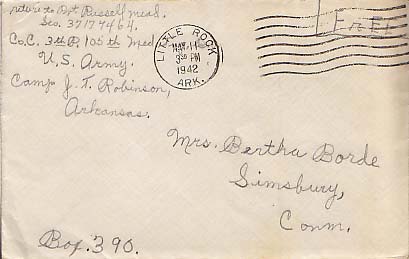 Return to Pvt. Russell Mead.
Sec. 37177464.
Co. C. 3rd P. 105th Med
U.S. Army.
Camp J. T. Robinson,
Arkansas.
LITTLE ROCK
MAY 11
3 30 PM
1942
ARK.
Free
Mrs. Bertha Borde
Simsbury,
Conn.
Box. 390.